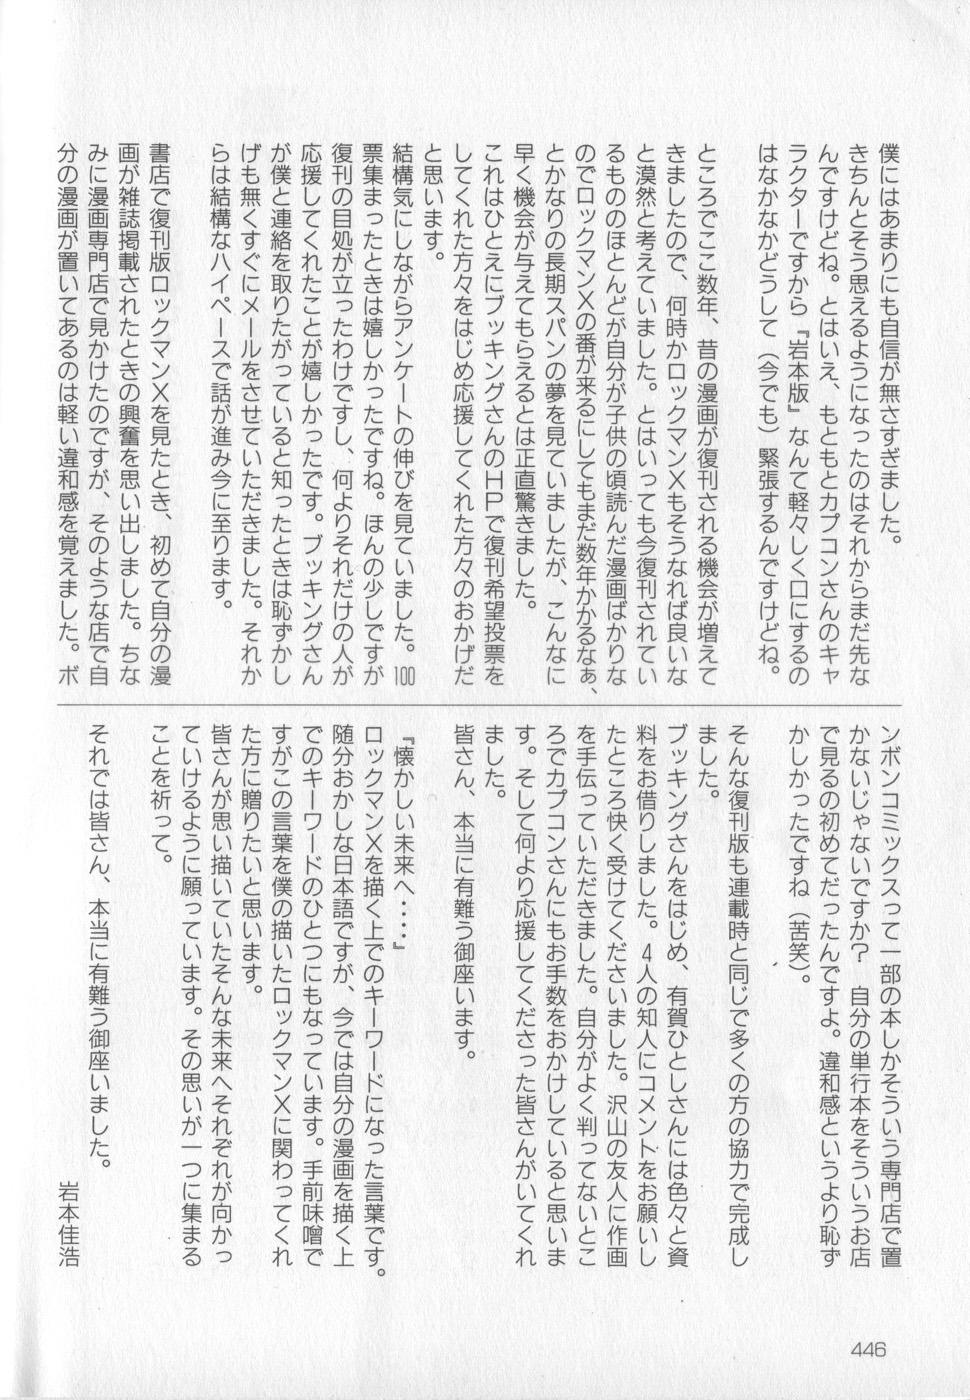 僕にはあまりにも自信が無さすぎました。
きちんとそう思えるようになったのはそれからまだ先な
んですけどね。とはいえ、もともとカプコンさんのキャ
ラクターですから『岩本版』なんて軽々しく口にするの
はなかなかどうして（今でも）緊張するんですけどね。
ところでここ数年、昔の漫画が復刊される機会が増えて
きましたので、何時かロックマンXもそうなれば良いな
と漠然と考えていました。とはいっても今復刊されてい
るもののほとんどが自分が子供の頃読んだ漫画ばかりな
のでロックマンXの番が来るにしてもまだ数年かかるなぁ、
とかなりの長期スパンの夢を見ていましたが、こんなに
早く機会が与えてもらえるとは正直驚きました。
これはひとえにブッキングさんのHPで復刊希望投票を
してくれた方々をはじめ応援してくれた方々のおかげだ
と思います。
結構気にしながらアンケートの伸びを見ていました。100
票集まったときは嬉しかったですね。ほんの少しですが
復刊の目処が立ったわけですし、何よりそれだけの人が
応援してくれたことが嬉しかったです。ブッキングさん
が僕と連絡を取りたがっていると知ったときは恥ずかし
げも無くすぐにメールをさせていただきました。それか
らは結構なハイペースで話が進み今に至ります。
書店で復刊版ロックマンXを見たとき、初めて自分の漫
画が雑誌掲載されたときの興奮を思い出しました。ちな
みに漫画専門店で見かけたのですが、そのような店で自
分の漫画が置いてあるのは軽い違和感を覚えました。ボ
ンボンコミックスって一部の本しかそういう専門店で置
かないじゃないですか？　自分の単行本をそういうお店
で見るの初めてだったんですよ。違和感というより恥ず
かしかったですね（苦笑）。
そんな復刊版も連載時と同じで多くの方の協力で完成し
ました。
ブッキングさんをはじめ、有賀ひとしさんには色々と資
料をお借りしました。4人の知人にコメントをお願いし
たところ快く受けてくださいました。沢山の友人に作画
を手伝っていただきました。自分がよく判ってないとこ
ろでカプコンさんにもお手数をおかけしていると思いま
す。そして何より応援してくださった皆さんがいてくれ
ました。
皆さん、本当に有難う御座います。
『懐かしい未来へ‥‥』
ロックマンXを描く上でのキーワードになった言葉です。
随分おかしな日本語ですが、今では自分の漫画を描く上
でのキーワードのひとつにもなっています。手前味噌で
すがこの言葉を僕の描いたロックマンXに関わってくれ
た方に贈りたいと思います。
皆さんが思い描いていたそんな未来へそれぞれが向かっ
ていけるように願っています。その思いが一つに集まる
ことを祈って。
それでは皆さん、本当に有難う御座いました。
岩本佳浩
446